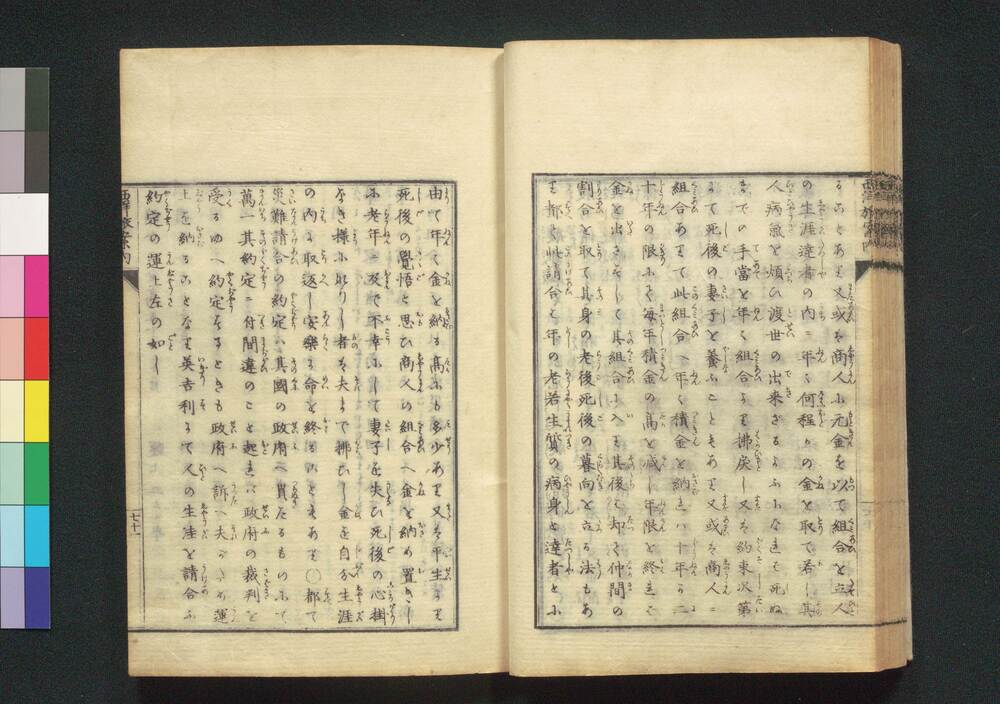 ることあり又或は商人小元金を以て組合を立人
の生涯達者の内ニ年々何程かの金を取て若し其
人病氣を煩ひ渡世の出来ざるようになるまで死ぬ
までの手當を年々組合より拂戻し又は約束次第
にて死後の妻子を養ふこともあり又或は商人ニ
組合ありて此組合へ年々積金を納れハ十年か二
十年の限にて毎年積金の高を減し年限を終まで
金を出さずして其組合ふ入り其後は却て仲間の
割合を取て其身の老後死後の暮向を立る法もあ
り都て此請合ハ年の老若生質の病身と達者とに
由て年々金を納る高にも多少あり又は平生より
死後の覺悟を思ひ商人の組合へ金を納め置きし
に老年ニ及て不幸にして妻子を失ひ死後の心掛
なき様になりし者は夫まで拂ひし金を自分生涯
の内に取返し安樂に命を終るひともあり〇都て
災難請合の約定ハ其國の政府へ貫たるものにて
萬一其約定ニ付間違のこと起れハ政府の裁判を
受るゆへ約定なすときも政府へ訴へ夫々の運
上を納ることなり英吉利にて人の生涯を請合ふ
約定の運上左の如し
西洋旅案内
七十一